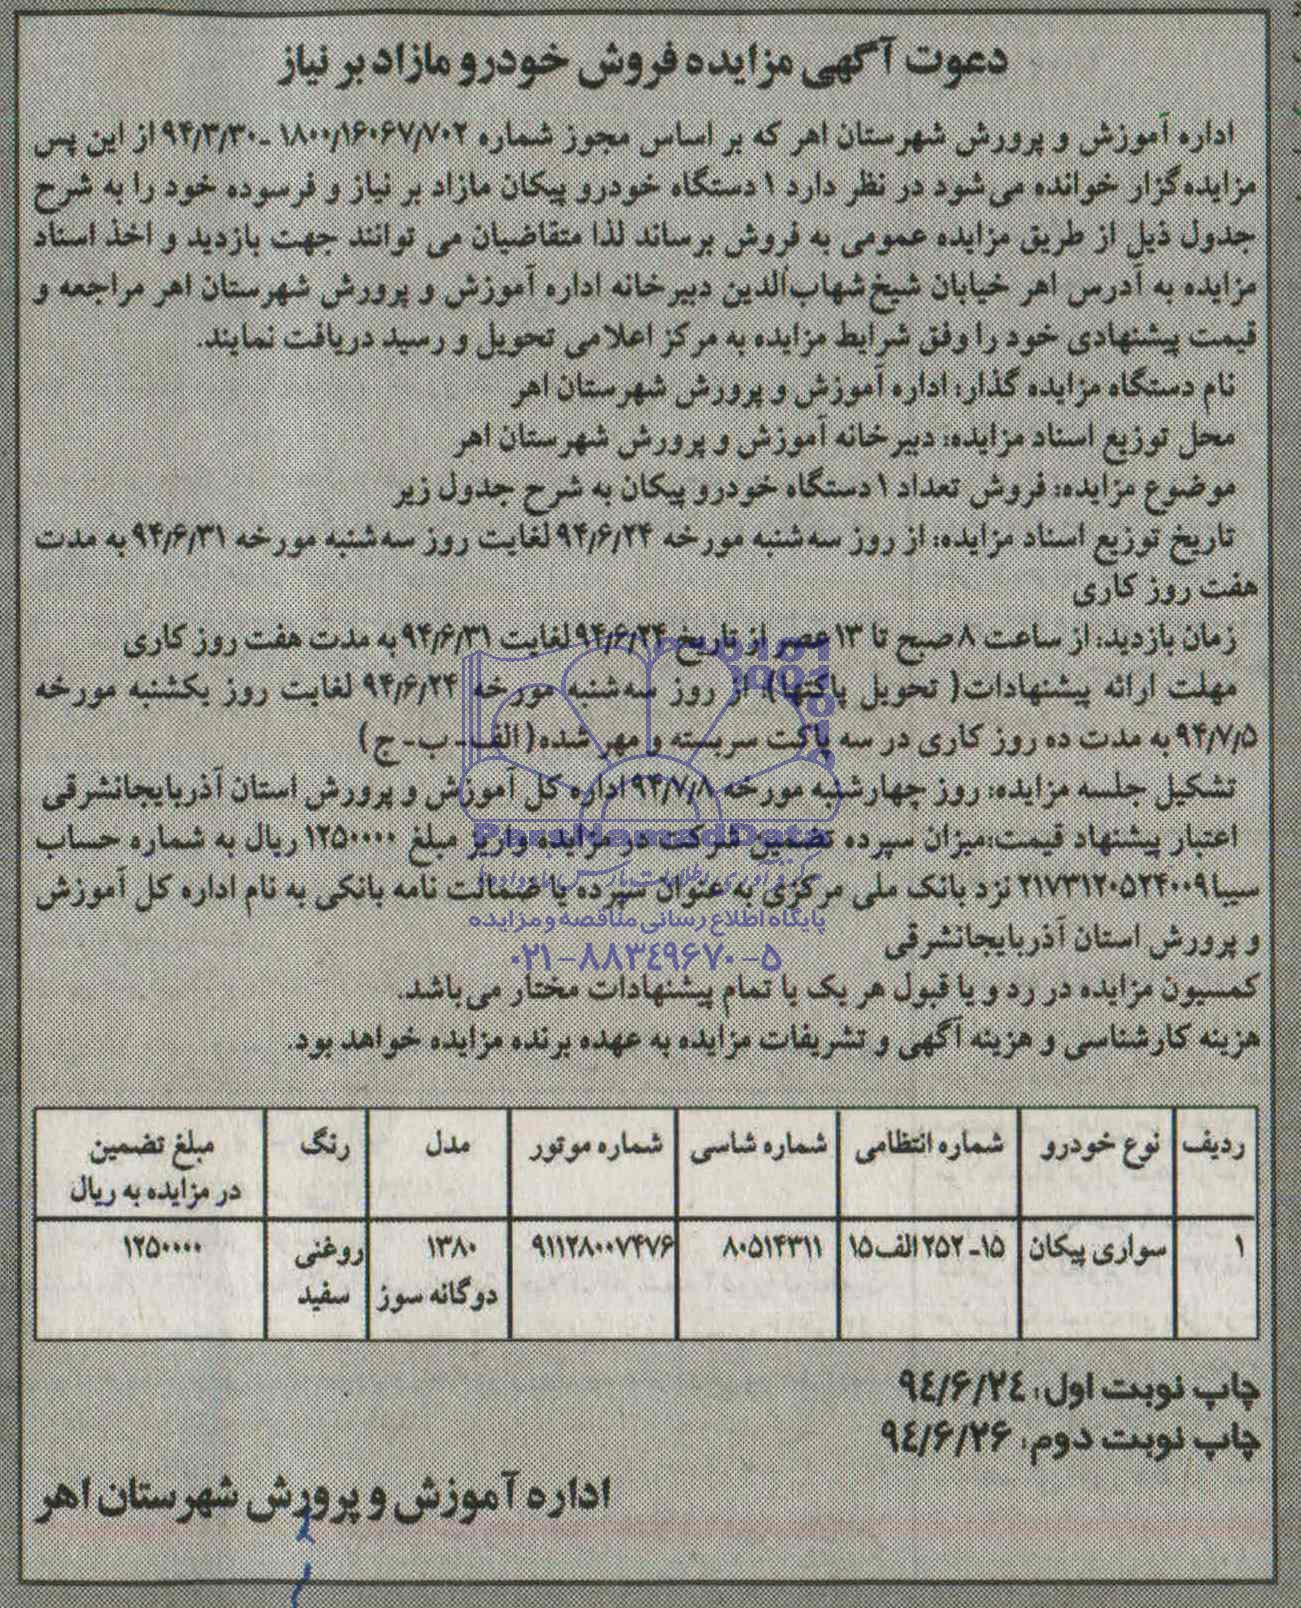 دعوت آگهی مزایده فروش خودرو مازاد بر نیاز
اداره آموزش و پرورش شهرستان اهر که بر اساس مجوز شماره ۱۸۰۰/۱۶۰۶۷/۷۰۲ -۹۴/۳/۳۰ از این پس
مزایده‌گزار خوانده می‌شود در نظر دارد ۱ دستگاه خودرو پیکان مازاد بر نیاز و فرسوده خود را به شرح
جدول ذیل از طریق مزایده عمومی به فروش برساند لذا متقاضیان می توانند جهت بازدید و اخذ اسناد
مزایده به آدرس اهر خیابان شیخ‌شهاب‌الدین دبیرخانه اداره آموزش و پرورش شهرستان اهر مراجعه و
قیمت پیشنهادی خود را وفق شرایط مزایده به مرکز اعلامی تحویل و رسید دریافت نمایند.
نام دستگاه مزایده گذار: اداره آموزش و پرورش شهرستان اهر
محل توزیع اسناد مزایده: دبیرخانه آموزش و پرورش شهرستان اهر
موضوع مزایده: فروش تعداد ۱ دستگاه خودرو پیکان به شرح جدول زیر
تاریخ توزیع اسناد مزایده: از روز سه‌شنبه مورخه ۹۴/۶/۲۴ لغایت روز سه‌شنبه مورخه ۹۴/۶/۳۱ به مدت
هفت روز کاری
زمان بازدید: از ساعت ۸ صبح تا ۱۳ عصر از تاریخ ۹۴/۶/۲۴ لغایت ۹۴/۶/۳۱ به مدت هفت روز کاری
مهلت ارائه پیشنهادات( تحویل پاکتها): از روز سه‌شنبه مورخه ۹۴/۶/۲۴ لغایت روز یکشنبه مورخه
۹۴/۷/۵ به مدت ده روز کاری در سه پاکت سربسته و مهر شده( الف- ب- ج )
تشکیل جلسه مزایده: روز چهارشنبه مورخه ۹۴/۷/۸ اداره کل آموزش و پرورش استان آذربایجانشرقی
اعتبار پیشنهاد قیمت:میزان سپرده تضمین شرکت در مزایده واریز مبلغ ۱۲۵۰۰۰۰ ریال به شماره حساب
سیبا ۲۱۷۳۱۲۰۵۲۴۰۰۹ نزد بانک ملی مرکزی به عنوان سپرده یا ضمانت نامه بانکی به نام اداره کل آموزش
و پرورش استان آذربایجانشرقی
کمسیون مزایده در رد و یا قبول هر یک یا تمام پیشنهادات مختار می‌باشد.
هزینه کارشناسی و هزینه آگهی و تشریفات مزایده به عهده برنده مزایده خواهد بود.
ParsNamadData
پایگاه اطلاع رسانی مناقصه و مزایده
۰۲۱-۸۸۳۴۹۶۷۰-۵
ردیف نوع خودرو شماره انتظامی شماره شاسی شماره موتور مدل رنگ مبلغ تضمین
در مزایده به ریال
۱ سواری پیکان ۱۵-۲۵۲ الف ۱۵ ۸۰۵۱۴۳۱۱ ۹۱۱۲۸۰۰۷۴۷۶ ۱۳۸۰ روغنی ۱۲۵۰۰۰۰
دوگانه سوز سفید
چاپ نوبت اول: ۹۴/۶/۲۴
چاپ نوبت دوم: ۹۴/۶/۲۶
اداره آموزش و پرورش شهرستان اهر